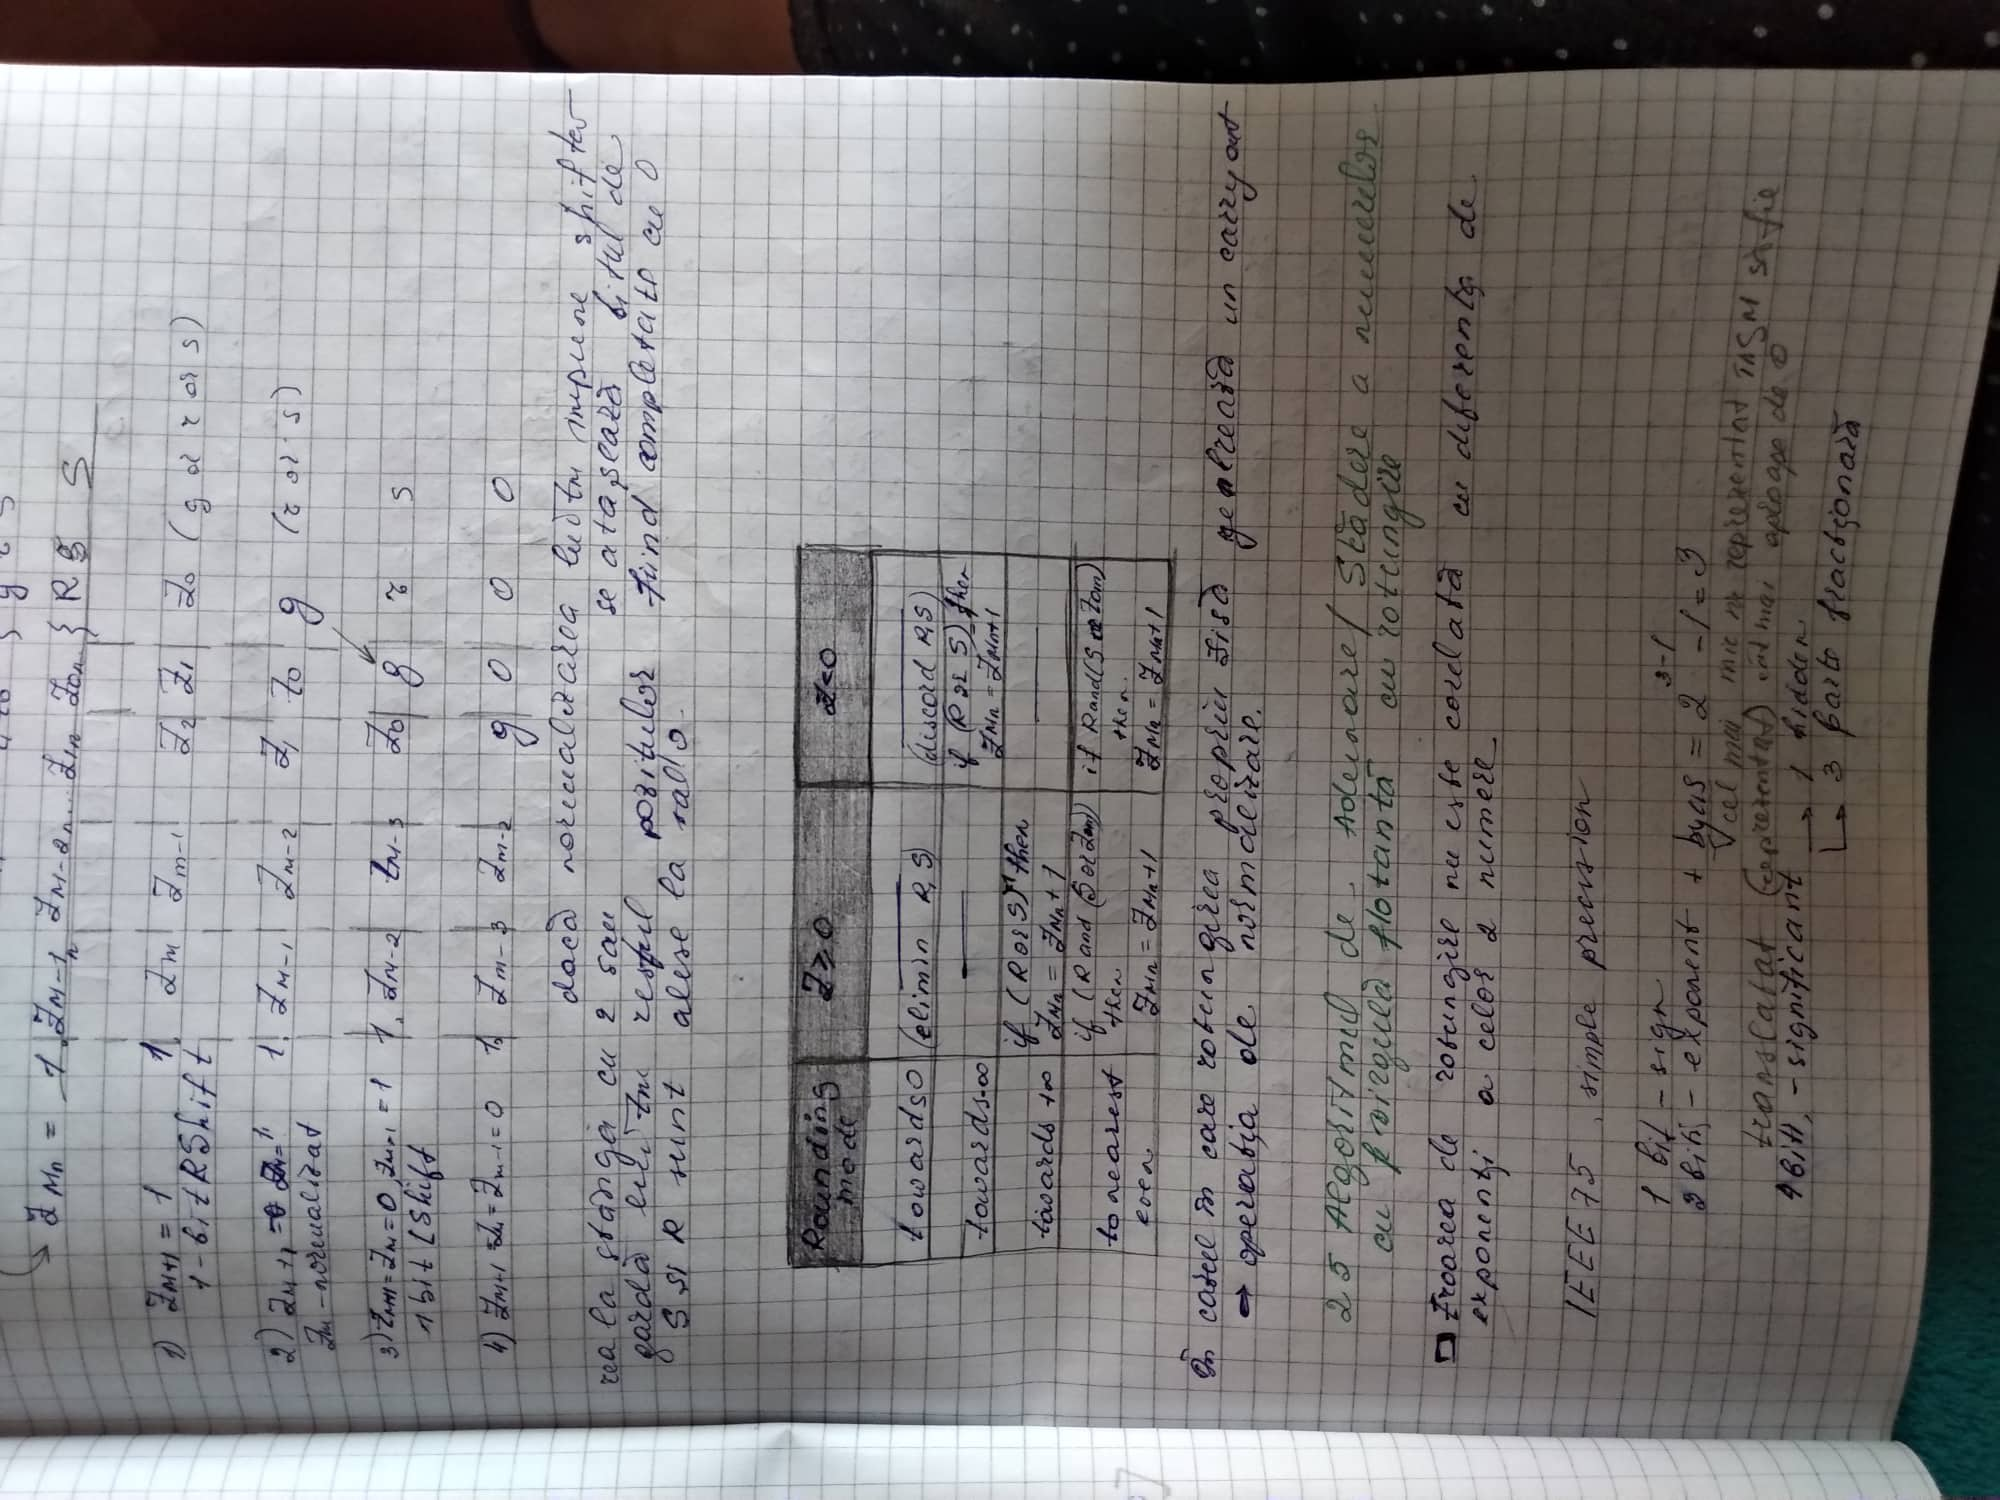 Z Mn = 1. ZM-1n ZM-2n... Z1n Z0n } R S S
1) ZM+1 = 1 1 1. ZM Zm-1 Z2 Z1 Z0 (g or r or s)
1-bit RShift
2) ZM+1 = 0 ZM=1 1. ZM-1 ZM-2 Z1 Z0 g (r or s)
ZM - normalizat
3) ZM+1 = ZM = 0, ZM-1 = 1 1. ZM-2 ZM-3 Z0 g r s
1 bit LShift
4) ZM+1 = ZM = ZM-1 = 0 1. ZM-3 ZM-2 g 0 0 0
dacă normalizarea lui Zm impune shifter
rea la stânga cu 2 sau se atașează bitul de
gardă lui Zm restul pozitiilor fiind completate cu 0
S și R sunt alese la val 0.
Rounding mode Z≥0 Z<0
towards 0 (elimin R,S) (discard R,S)
towards -∞ — if (R or S) then
ZMn = ZMn+1
towards +∞ if (R or S)=1 then —
ZMn = ZMn + 1
to nearest even if (R and (S or Z0n) then ZMn = ZMn+1 if R and (S or Z0n) then ZMn = ZMn+1
În cazul în care rotunjirea propriu zisă generează un carry out
→ operația de normalizare.
2.5 Algoritmul de Adunare / Scădere a numerelor
cu virgulă flotantă cu rotunjire
Eroarea de rotunjire nu este corelată cu diferența de
exponenți a celor 2 numere
IEEE 75 . simple precision
1 bit - sign
2 biți - exponent + byas = 2^3-1 - 1 = 3
cel mai mic nr reprezentat în SM să fie
translatat (reprezentat) cât mai aproape de 0
4 biți - significant → 1 hidden
→ 3 parte fracționară